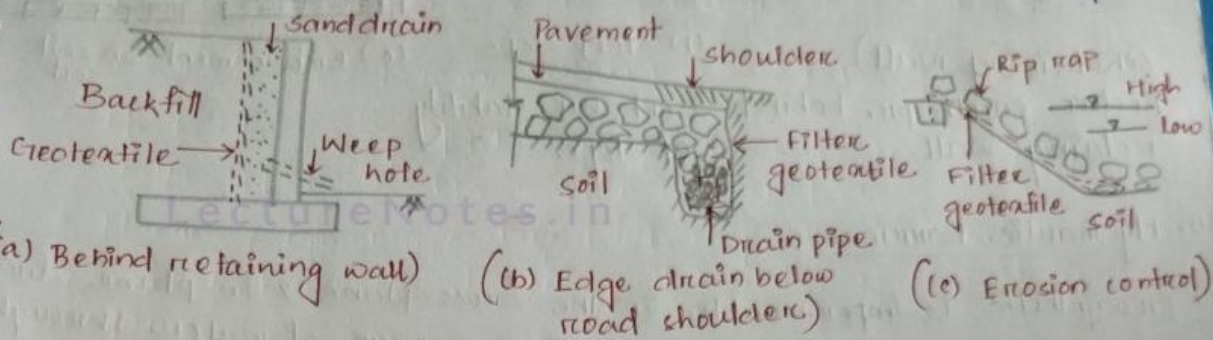 Sand drain
Backfill
Geotextile
Weep
hole
LectureNotes.in
a) Behind retaining wall)
Pavement
shoulder
Filter
geotextile
soil
Drain pipe
((b) Edge drain below
road shoulder)
Rip rap
High
Low
Filter
geotextile
soil
((c) Erosion control)